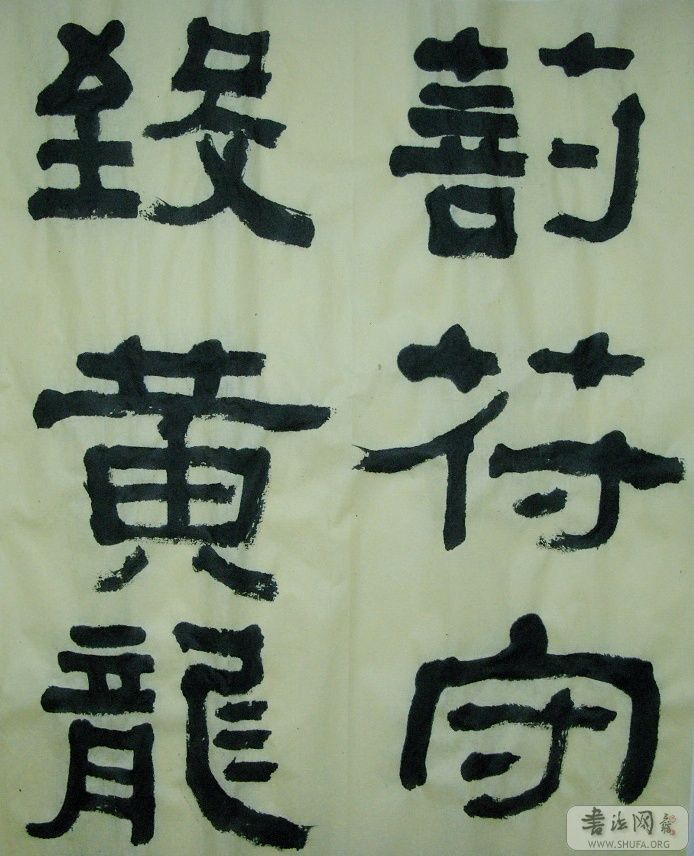 剖符守
致黄龍
书法网
WWW.SHUFA.ORG